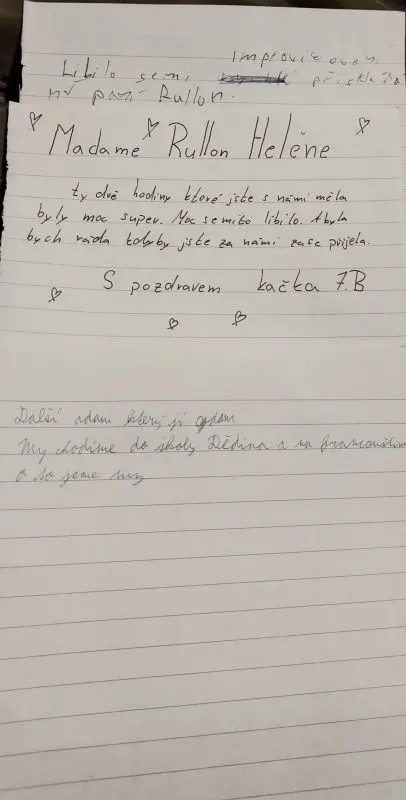 Improvizovaní
Líbilo se mi, překláda
ní paní Rullon.
Madame Rullon Helène
ty dvě hodiny které jste s námi měla
byly moc super. Moc se mi to líbilo. A byla
bych ráda kdyby jste za námi zase přijela.
S pozdravem kačka 7.B
Další adam který jí
My chodíme do školy Dědina a na francouštinu
a to jsme my